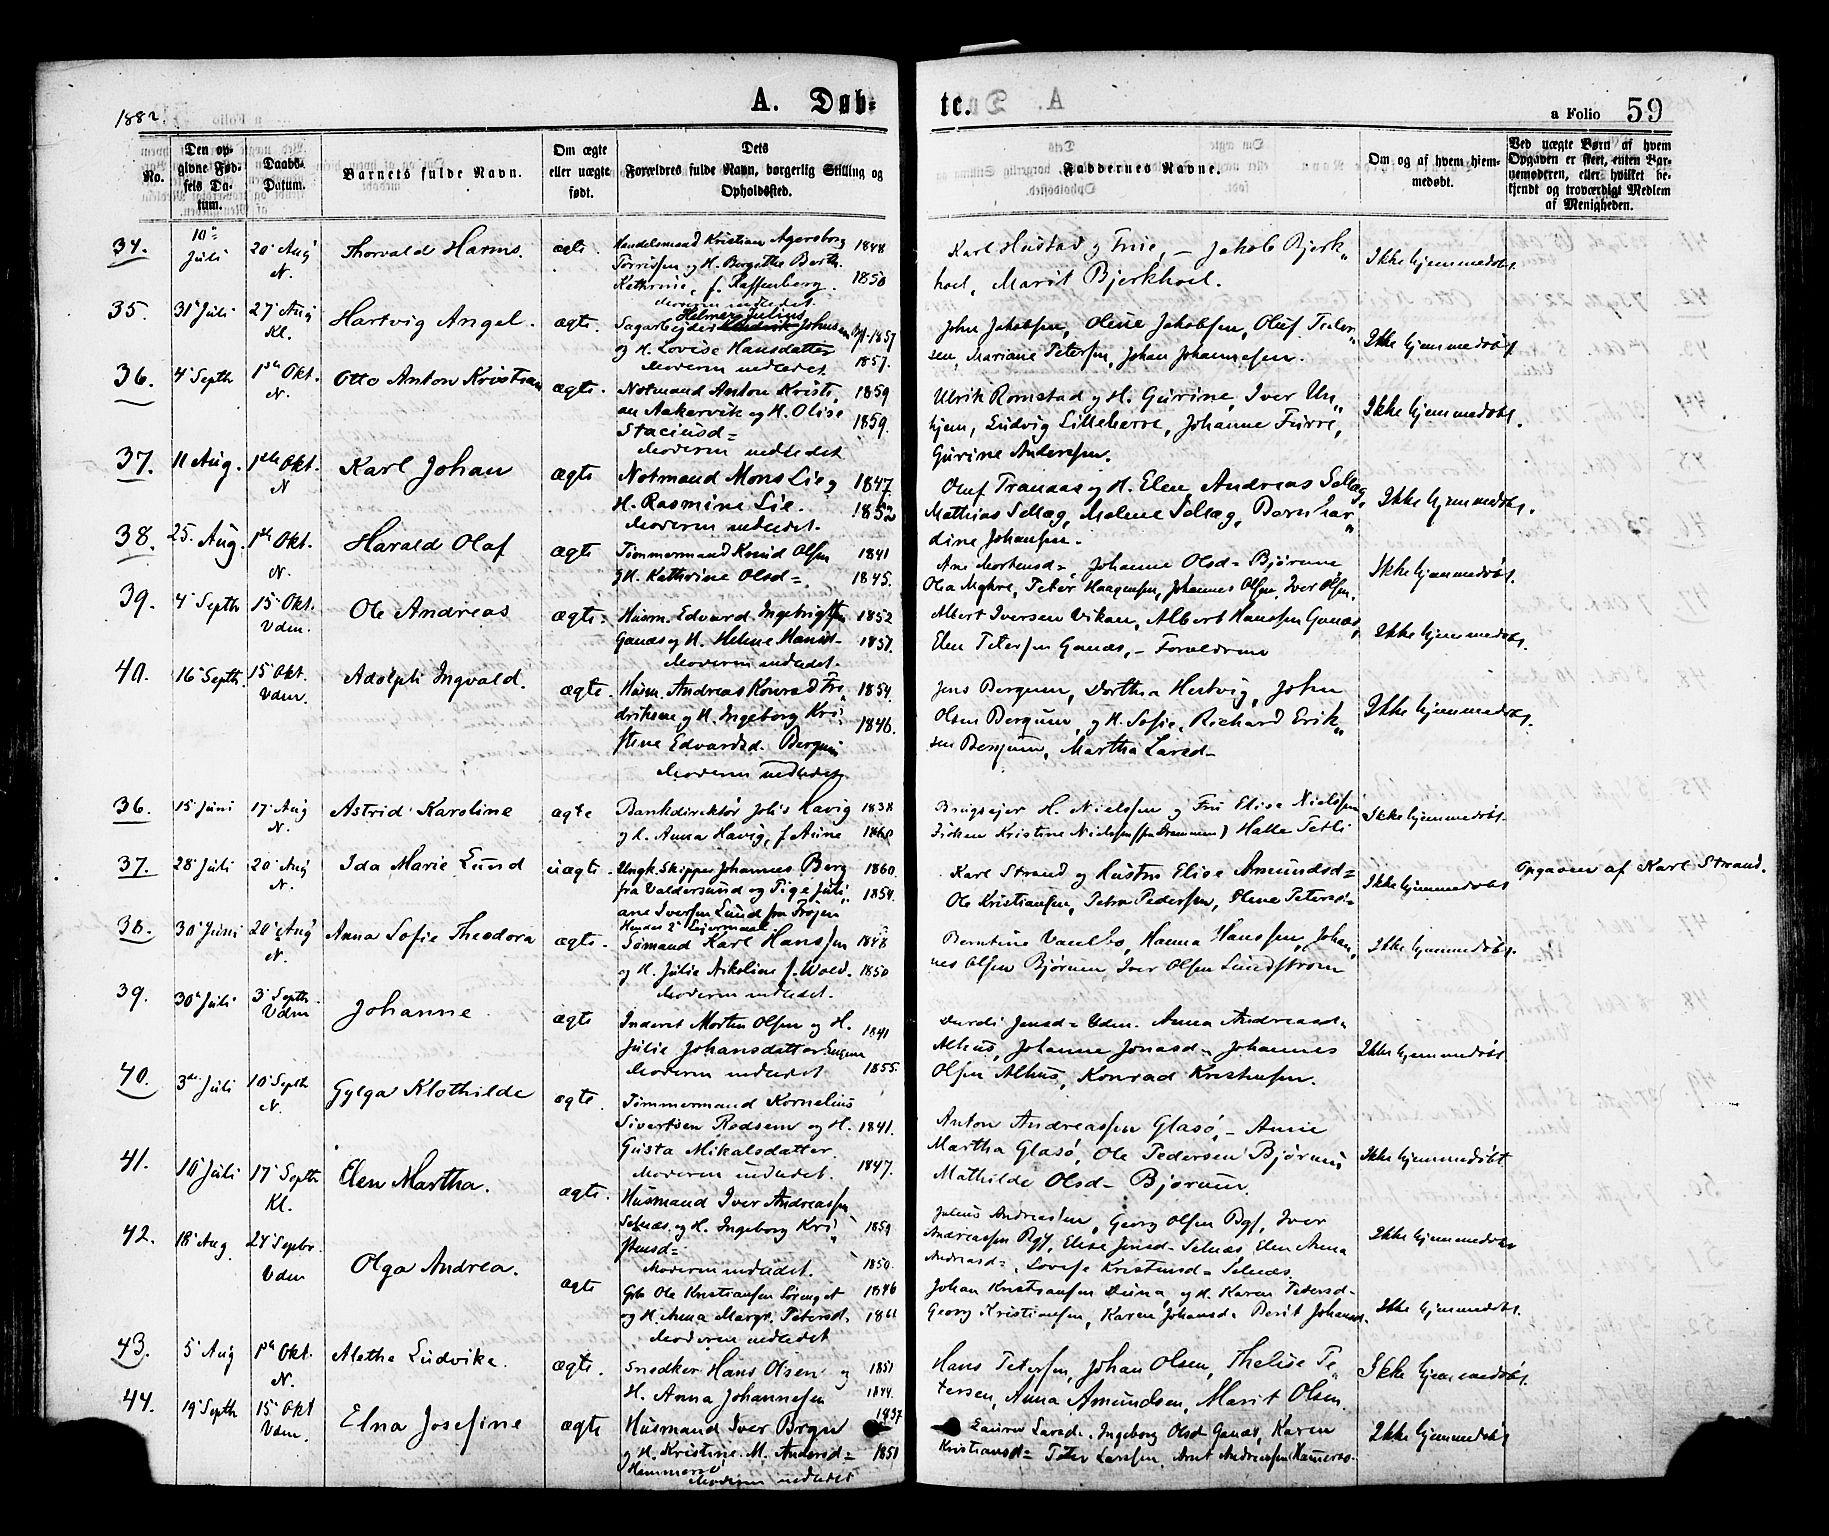 1882.
A. Døb-
te.
a Folio 59
No.
Den op-
givne Fød-
sels Da-
tum.
Daabs-
Datum.
Barnets fulde Navn.
Om ægte
eller uægte
født.
Dets
Forældres fulde Navn, borgerlig Stilling og
Opholdssted.
Faddernes Navne.
Om og af hvem hjem-
medøbt.
Ved uægte Børn af hvem
Opgaven er skeet, enten Bar-
nemoderen, eller hvilket be-
kjendt og troværdigt Medlem
af Menigheden.
34. 10 Juli 20 Aug N. Thorvald Harms. ægte. Handelsmand Kristian Agersborg 1848
Torrissen og H. Borgithe Berth.
Kathrine, f. Raffenberg. 1850
Moderen indledet.
Karl Hustad og Frue, - Jakob Bjerk-
hoel, Marit Bjerkhoel.
Ikke hjemmedøbt.
35. 31 Juli 27 Aug Kl. Hartvig Angel. ægte. Helmer Julius
Sagarbejder Johnsen 1857
og H. Lovise Hansdatter 1857.
Moderen indledet.
John Jakobsen, Oline Jakobsen, Oluf Peter-
sen, Mariane Petersen, Johan Johannesen.
Ikke hjemmedøbt
36. 4 Septb 1ste Okt. N. Otto Anton Kristian ægte. Notmand Anton Kristi- 1859
an Aakervik og H. Olise 1859.
Staciusd=
Moderen indledet
Ulrik Romstad og H. Gurine, Iver Un-
hjem, Ludvig Lilleherre, Johanne Furre,
Gurine Andersen.
Ikke hjemmedøbt.
37. 11 Aug. 1ste Okt. N Karl Johan ægte Notmand Mons Lie og 1847
H. Rasmine Lie. 1852
Moderen indledet.
Oluf Tranaas og H. Elen Andreas Sellæg,
Mathias Sellæg, Malene Sellæg, Bernhar-
dine Johansen.
Ikke hjemmedøbt.
38. 25. Aug. 1ste Okt. N. Harald Olaf ægte Tømmermand Knud Olsen 1841
og H. Kathrine Olsd=. 1845.
Ane Mortensd= Johanne Olsd= Bjørnue,
Ola Møhre, Peter Haagensen, Johannes Olsen, Iver Olsen.
Ikke hjemmedøbt.
39. 4 Septb 15 Okt. Vdm. Ole Andreas ægte. Husm. Edvard Ingebrigtsen 1852
Ganæs og H. Helene Hansd- 1857.
Moderen indledet.
Albert Iversen Vikan, Albert Hanssen Ganæs,
Elen Petersen Ganæs, - Forældrene
Ikke hjemmedøbt.
40. 16 Septb. 15 Okt. Vdm. Adolph Ingvald. ægte. Husm. Andreas Konrad Fre- 1854.
driksen og H. Ingeborg Kri- 1846.
stine Edvardsd. Bergum
Moderen indledet.
Jens Bergum, Dorthea Hestvig, John
Olsen Bergum, og H. Sofie, Richard Erik-
sen Bergum, Martha Larsd-
Ikke hjemmedøbt.
36. 15 Juni 17 Aug N. Astrid Karoline ægte Bankdirektør Johs Havig 1838
og H. Anna Havig, f. Aune 1860
Brugsejer H. Nielssen og Fru Elise Nielssen
Frøken Kristine Nielssen (fra Drammen) Halle Tetli
Ikke hjemmedøbt.
37. 28 Juli 20 Aug N. Ida Marie Lund uægte. Ungk. Skipper Johannes Berg 1860.
fra Valdersund og Pige Juli- 1854.
ane Iversen Lund fra Frøjen
Hendes 2det Leiermaal
Karl Strand og Hustru Elise Amundsd=
Ole Kristiansen, Petra Pedersen, Oline Petersd=
Ikke hjemmedøbt
Opgaven af Karl Strand.
38. 30 Juni 20 Aug N. Anna Sofie Theodora ægte. Sømand Karl Hanssen 1848
og H. Julie Nikoline f. Wold. 1850
Moderen indledet.
Berntine Vandbo, Hanna Hanssen, Johan-
nes Olsen Bjørnum Iver Olsen Lundstrøm
Ikke hjemmedøbt.
39. 30 Juli 3 Septb. Vdm Johanne. ægte Inderst Morten Olsen og H. 1841
Julie Johansdatter
Moderen indledet 1855.
Durdi Jensd= Vdm. Anna Andreasd=
Alhus, Johanne Jonasd= Johannes
Olsen Alhus, Konrad Kristensen.
Ikke hjemmedøbt
40. 3die Juli 10 Septb N. Gylga Klothilde ægte. Tømmermand Kornelius
Sivertsen Rødsem og H. 1841.
Gusta Mikalsdatter.
Moderen indledet. 1847.
Anton Andreassen Glasø, - Anne
Martha Glasø, Ole Pedersen Bjørnum
Mathilde Olsd= Bjørnum.
Ikke hjemmedøbt
41. 10 Juli 17 Septb Kl. Elen Martha. ægte. Husmand Iver Andreassen
Selnæs. og H. Ingeborg Kri- 1859
stensd=
Moderen indledet. 1850.
Julius Andreassen, Georg Olsen Rgf, Iver
Andreassen Rgf, Elise Jensd= Selnæs, Elen Anna
Andreasd=, Lovise Kristensd= Selnæs.
Ikke hjemmedøbt
42. 18 Aug. 24 Septbr. Vdm Olga Andrea. ægte Gbr Ole Kristiansen Sørenget 1846
og H. Anna Margr. Petersd.
Moderen indledet
Johan Kristiansen Duna, og H. Karen Pedersd-
Georg Kristiansen, Karen Johansd= Berit Johansd.
Ikke hjemmedøbt.
43. 5 Aug 1ste Okt. N. Alethe Ludvike. ægte. Snedker Hans Olsen og 1851
H. Anna Johannesen 1844.
Hans Petersen, Johan Olsen, Thelise Pe-
tersen, Anna Amundsen, Marit Olsen.
Ikke hjemmedøbt.
44. 19 Septb 15 Okt Vdm. Elna Josefine ægte Husmand Iver Brgn 1837
og H. Kristine M. Andersd= 1851
Hammerø
Moderen indledet
Laura Larsd. Ingeborg Olsd Ganæs, Karen
Kristiansd= Peter Larssen, Arnt Andreassen Hamerø.
Ikke hjemmedøbt